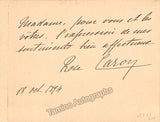 Madame, pour vous et les
vôtres. l'expression de mes
sentiments bien affectueux
Rose Caron
18 oct. 1894
Tamino Autographs